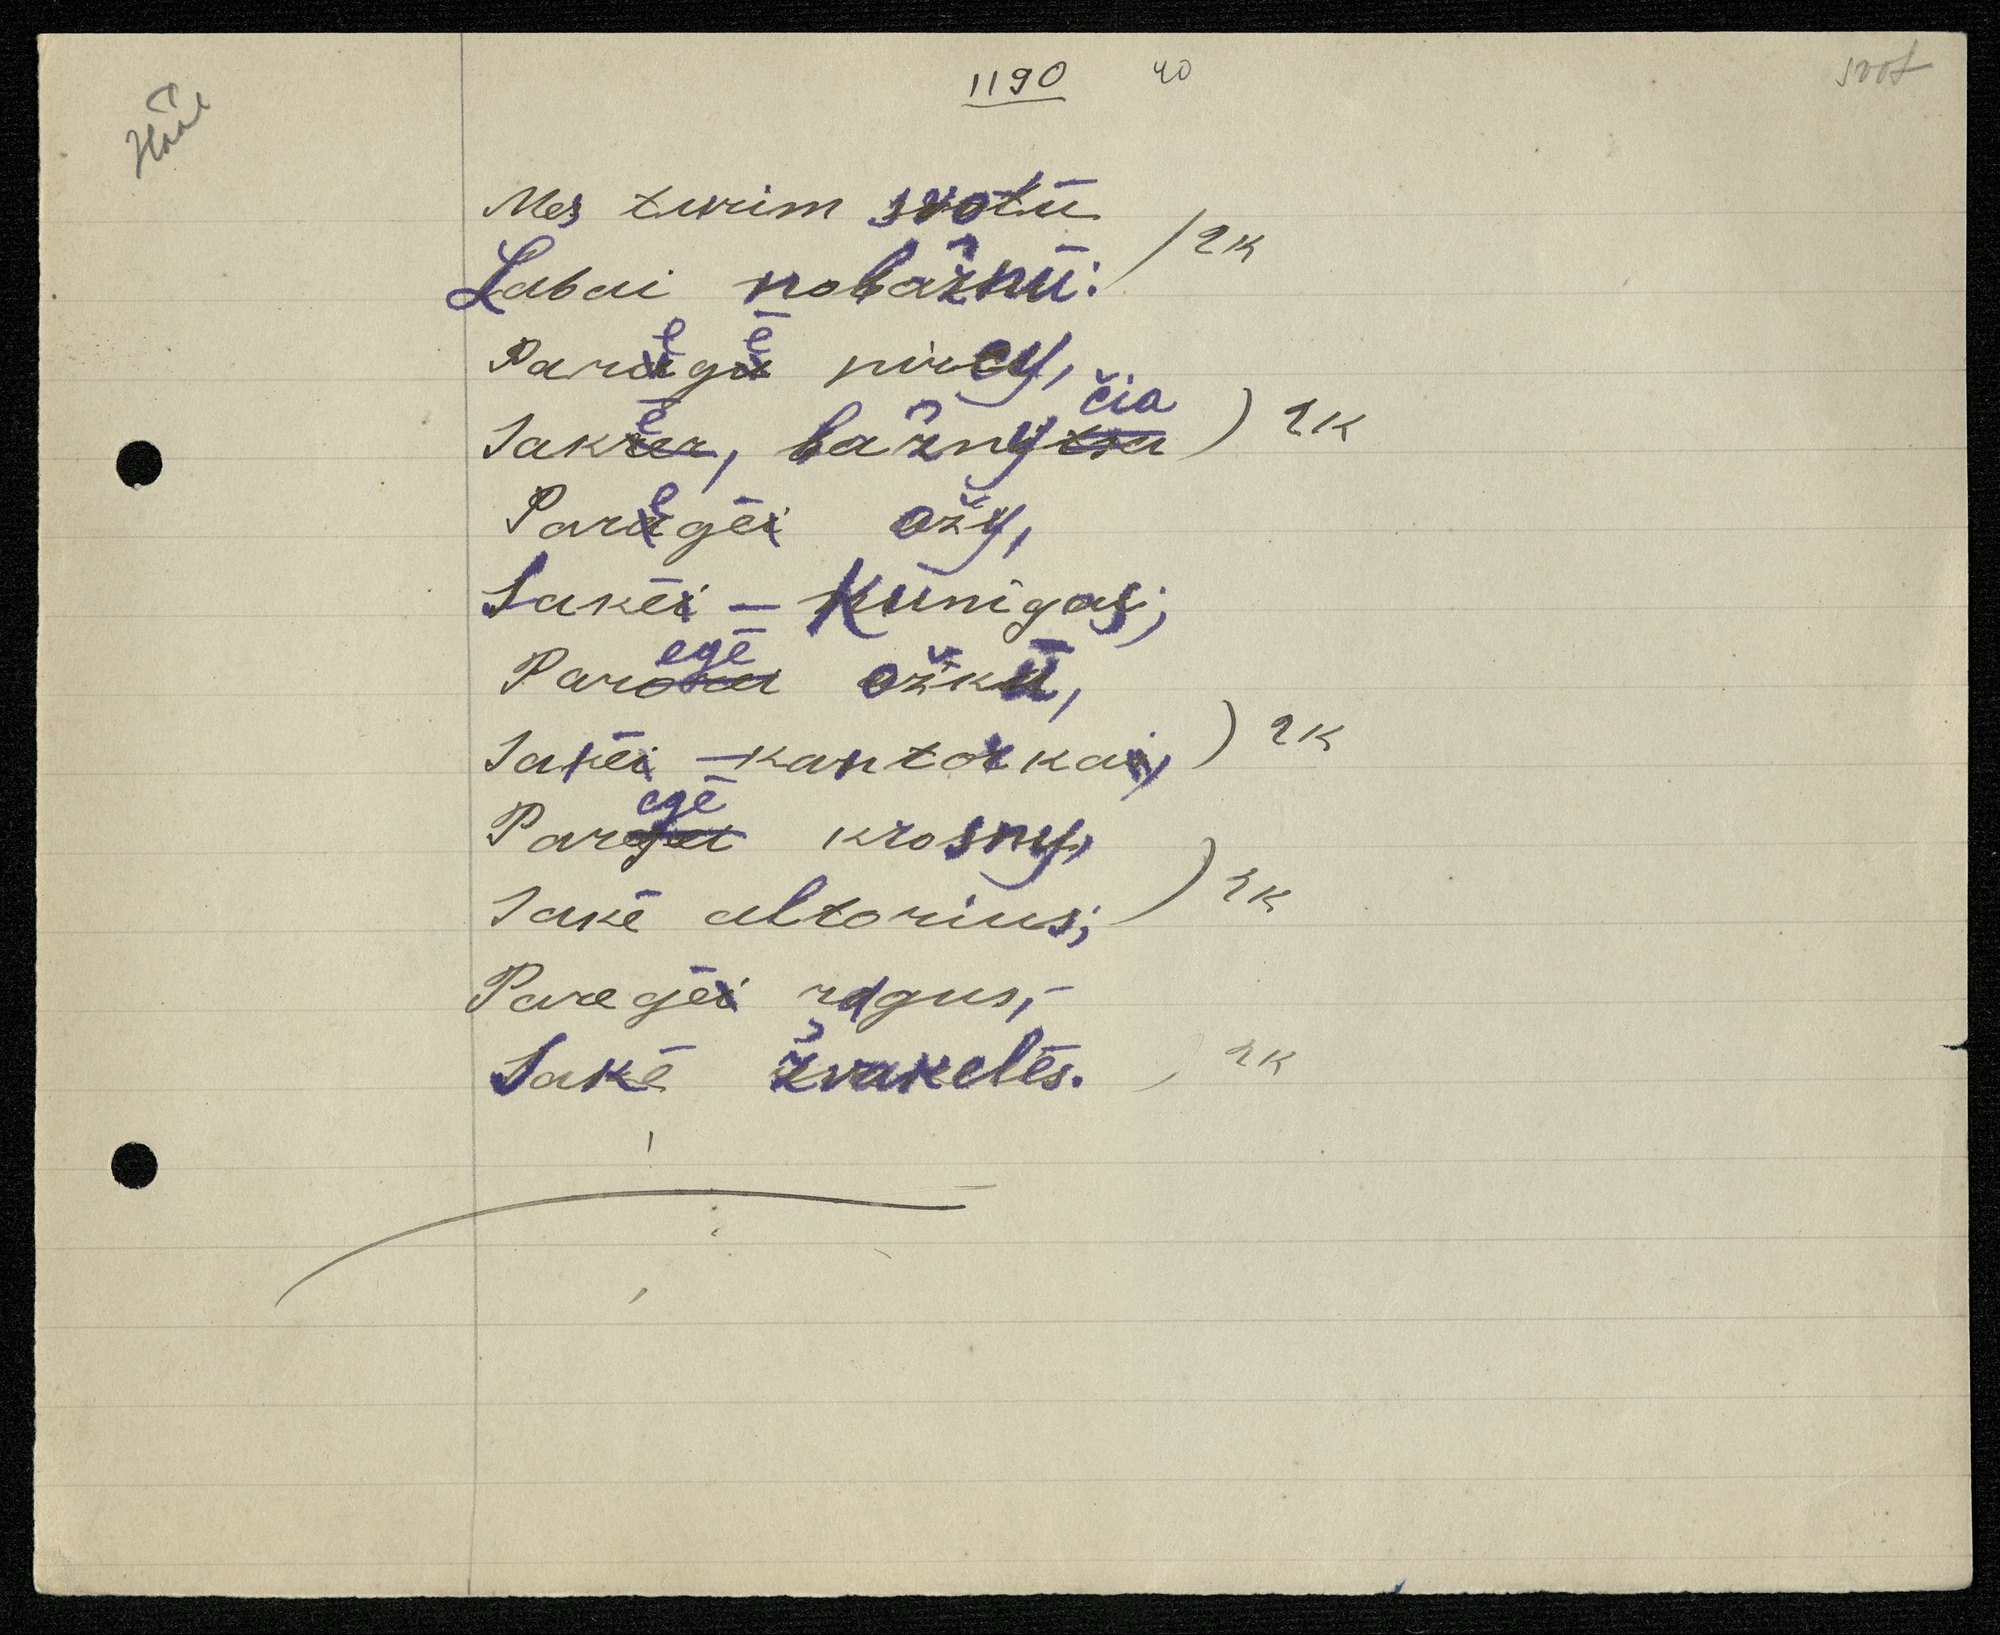 1190 40
svot
Mes turim svotū
Labai nobažnū: /2K
Paregē pircy,
Sakē, bažnyčia ) 2K
Paregē ožy,
Sakē – Kūnigas;
Paregē ožkū,
Sakē – kantorka, ) 2K
Paregē krosny,
Sakē altorius; ) 2K
Paregē ragus, –
Sakē žvakelēs. ) 2K